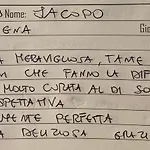 Nome: JACOPO
ENA Gio
A MERAVIGLIOSA, TANTE
CHE FANNO LA DIF
MOLTO CURATA AL DI SO
SPETTATIVA
MENTE PERFETTA
DELIZIOSA GRAZI